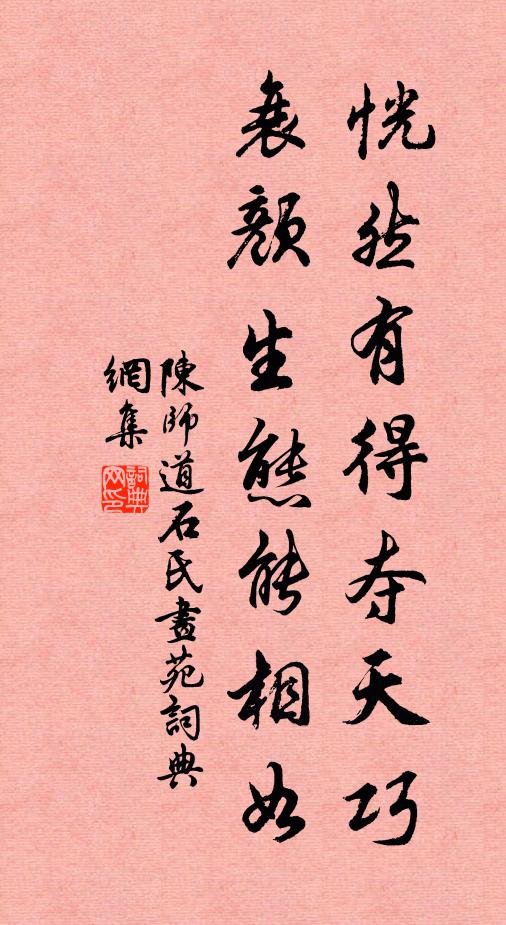 恍然有得夺天巧
衰颜生态能相如
陳師道石氏畫苑詞典
網集
詞典
网印